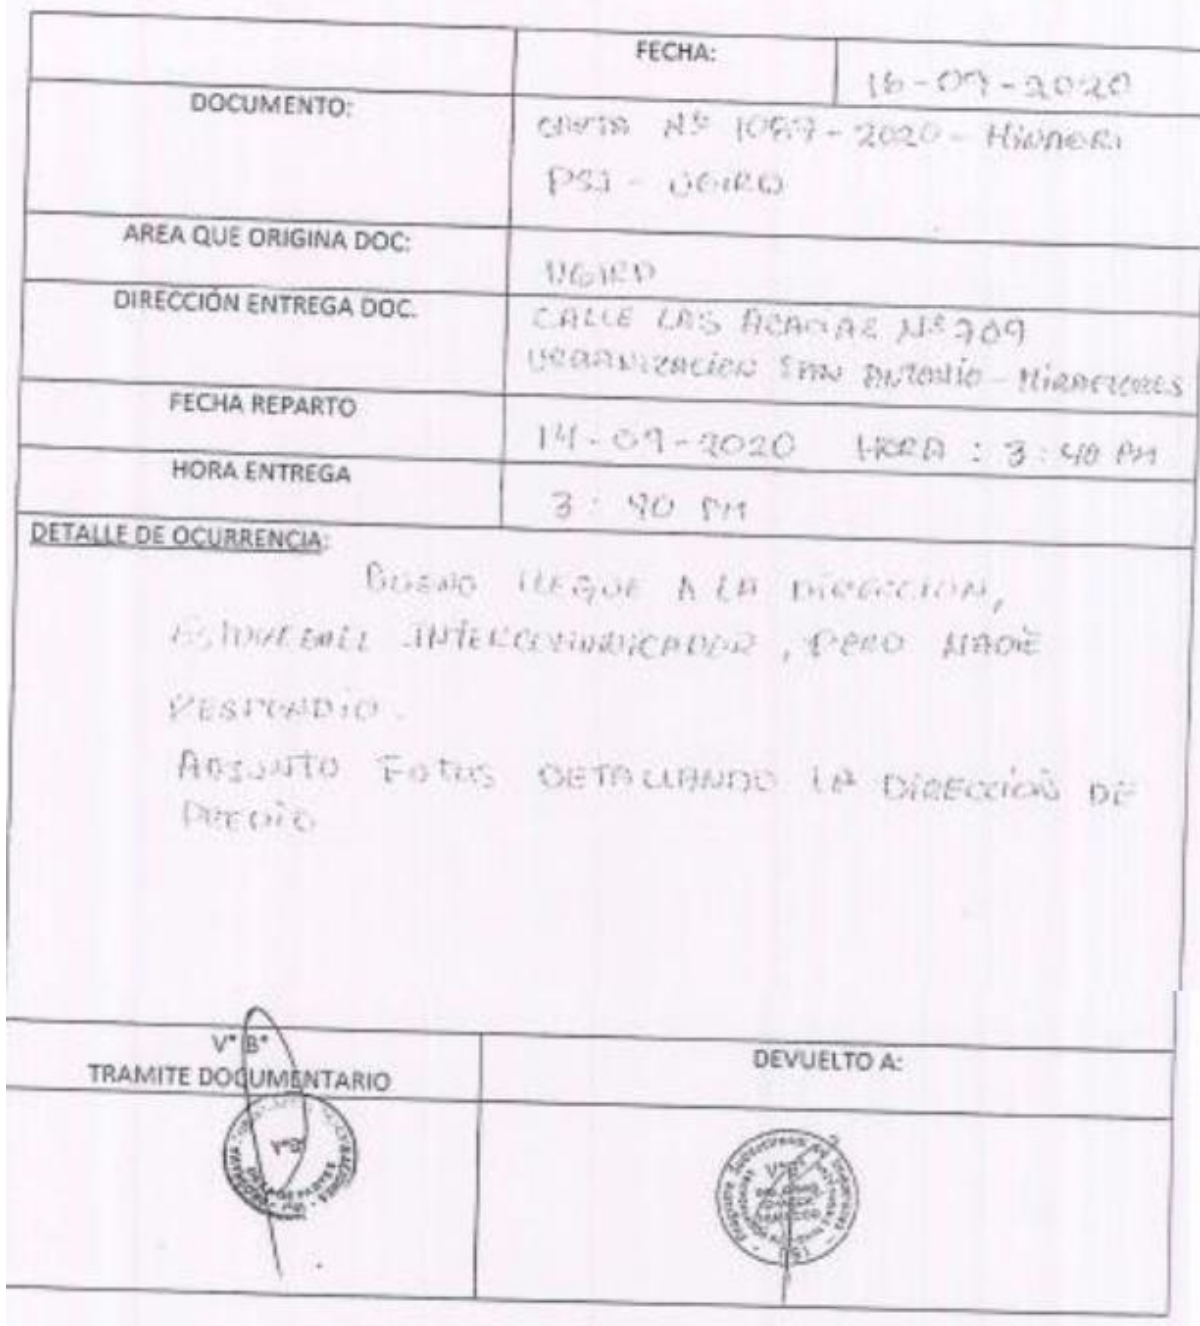 FECHA:
16-09-2020
DOCUMENTO:
CARTA Nº 1087-2020-MINAGRI
PSI - UGIRD
AREA QUE ORIGINA DOC:
UGIRD
DIRECCIÓN ENTREGA DOC.
CALLE LAS ACACIAS Nº 709
URBANIZACION SAN ANTONIO - MIRAFLORES
FECHA REPARTO
14-09-2020 HORA : 3:40 PM
HORA ENTREGA
3:40 PM
DETALLE DE OCURRENCIA:
BUENO LLEGUE A LA DIRECCION,
INTERCOMUNICADOR, PERO NADIE
RESPONDIO.
ADJUNTO FOTOS DETALLANDO LA DIRECCIÓN DE
PREDIO
V°B°
TRAMITE DOCUMENTARIO
DEVUELTO A:
V°B°
V°B°
PSI